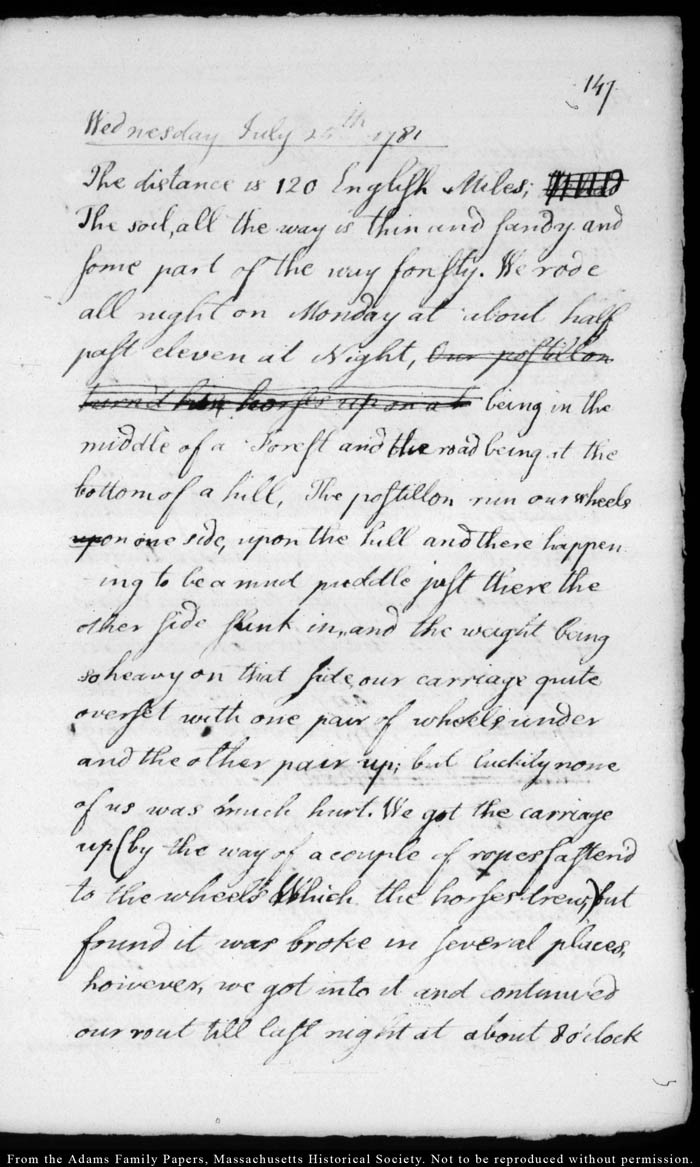 147
Wednesday July 25th 1781
The distance is 120 English Miles;
The soil, all the way is thin and sandy and
some part of the way foresty. We rode
all night on Monday at about half
past eleven at Night, Our postillon
turn'd his horses upon a being in the
middle of a Forest and the road being at the
bottom of a hill, The postillon run our wheels
upon one side, upon the hill and there happen
ing to be a mud puddle just there the
other side sunk in, and the weight being
so heavy on that side, our carriage quite
overset with one pair of wheels under
and the other pair up; but luckily none
of us was much hurt. We got the carriage
up (by the way of a couple of ropes fasten'd
to the wheels Which the horses drew,) but
found it was broke in several places,
however, we got into it and continued
our rout till last night at about 8 o'clock
From the Adams Family Papers, Massachusetts Historical Society. Not to be reproduced without permission.